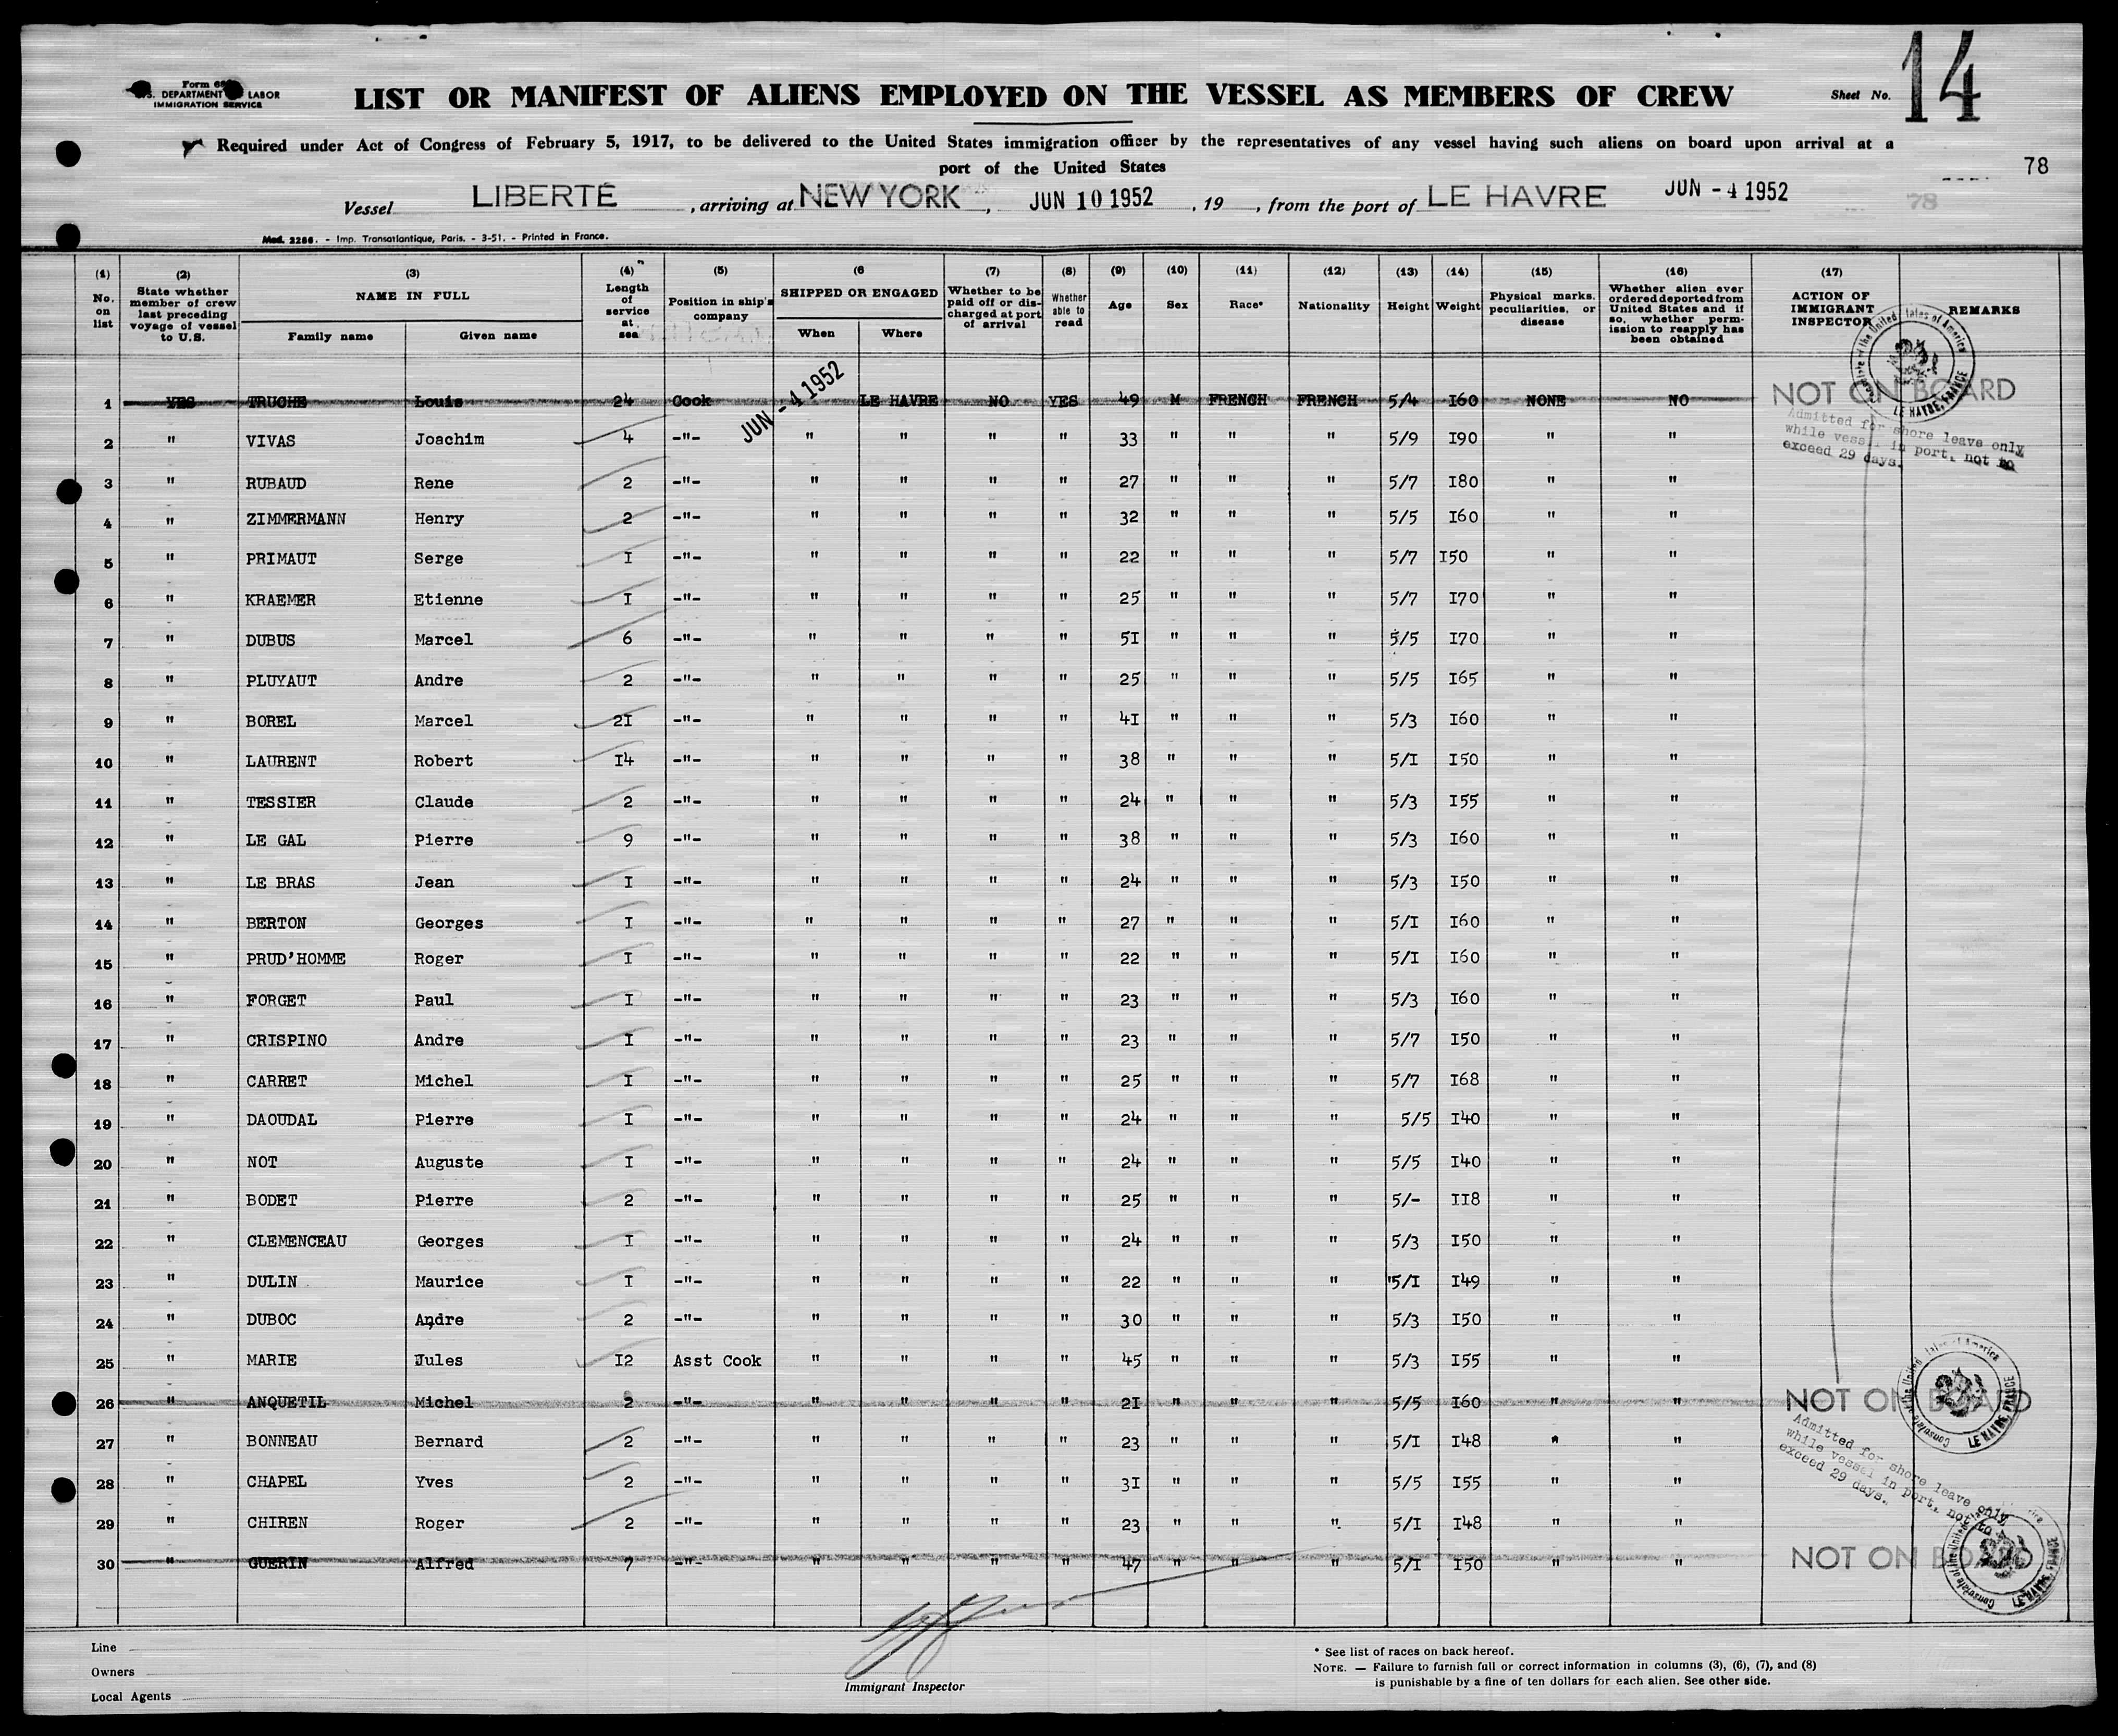 Form 68
U.S. DEPARTMENT OF LABOR
IMMIGRATION SERVICE
LIST OR MANIFEST OF ALIENS EMPLOYED ON THE VESSEL AS MEMBERS OF CREW
Sheet No. 14
Required under Act of Congress of February 5, 1917, to be delivered to the United States immigration officer by the representatives of any vessel having such aliens on board upon arrival at a
port of the United States
78
Vessel LIBERTÉ , arriving at NEW YORK , JUN 10 1952 , 19 , from the port of LE HAVRE JUN - 4 1952
78
Mod. 2266. - Imp. Transatlantique, Paris. - 3-51. - Printed in France.
(1) No. on list
(2) State whether member of crew last preceding voyage of vessel to U.S.
(3) NAME IN FULL Family name Given name
(4) Length of service at sea
(5) Position in ship's company
(6 SHIPPED OR ENGAGED When Where
(7) Whether to be paid off or discharged at port of arrival
(8) Whether able to read
(9) Age
(10) Sex
(11) Race*
(12) Nationality
(13) Height
(14) Weight
(15) Physical marks, peculiarities, or disease
(16) Whether alien ever ordered deported from United States and if so, whether permission to reapply has been obtained
(17) ACTION OF IMMIGRANT INSPECTOR
REMARKS
JUN - 4 1952
1 YES TRUCHE Louis 24 Cook LE HAVRE NO YES 49 M FRENCH FRENCH 5/4 I60 NONE NO NOT ON BOARD
Consulate of the United States of America LE HAVRE, FRANCE
Admitted for shore leave only
while vessel in port, not to
exceed 29 days.
2 " VIVAS Joachim 4 -"- " " " " 33 " " " 5/9 I90 " "
3 " RUBAUD Rene 2 -"- " " " " 27 " " " 5/7 I80 " "
4 " ZIMMERMANN Henry 2 -"- " " " " 32 " " " 5/5 I60 " "
5 " PRIMAUT Serge I -"- " " " " 22 " " " 5/7 I50 " "
6 " KRAEMER Etienne I -"- " " " " 25 " " " 5/7 I70 " "
7 " DUBUS Marcel 6 -"- " " " " 5I " " " 5/5 I70 " "
8 " PLUYAUT Andre 2 -"- " " " " 25 " " " 5/5 I65 " "
9 " BOREL Marcel 2I -"- " " " " 4I " " " 5/3 I60 " "
10 " LAURENT Robert I4 -"- " " " " 38 " " " 5/I I50 " "
11 " TESSIER Claude 2 -"- " " " " 24 " " " 5/3 I55 " "
12 " LE GAL Pierre 9 -"- " " " " 38 " " " 5/3 I60 " "
13 " LE BRAS Jean I -"- " " " " 24 " " " 5/3 I50 " "
14 " BERTON Georges I -"- " " " " 27 " " " 5/I I60 " "
15 " PRUD'HOMME Roger I -"- " " " " 22 " " " 5/I I60 " "
16 " FORGET Paul I -"- " " " " 23 " " " 5/3 I60 " "
17 " CRISPINO Andre I -"- " " " " 23 " " " 5/7 I50 " "
18 " CARRET Michel I -"- " " " " 25 " " " 5/7 I68 " "
19 " DAOUDAL Pierre I -"- " " " " 24 " " " 5/5 I40 " "
20 " NOT Auguste I -"- " " " " 24 " " " 5/5 I40 " "
21 " BODET Pierre 2 -"- " " " " 25 " " " 5/- II8 " "
22 " CLEMENCEAU Georges I -"- " " " " 24 " " " 5/3 I50 " "
23 " DULIN Maurice I -"- " " " " 22 " " " "5/I I49 " "
24 " DUBOC Andre 2 -"- " " " " 30 " " " 5/3 I50 " "
25 " MARIE Jules I2 Asst Cook " " " " 45 " " " 5/3 I55 " "
26 " ANQUETIL Michel 2 -"- " " " " 2I " " " 5/5 I60 " " NOT ON BOARD
Consulate of the United States of America LE HAVRE, FRANCE
Admitted for shore leave only
while vessel in port, not to
exceed 29 days.
27 " BONNEAU Bernard 2 -"- " " " " 23 " " " 5/I I48 " "
28 " CHAPEL Yves 2 -"- " " " " 3I " " " 5/5 I55 " "
29 " CHIREN Roger 2 -"- " " " " 23 " " " 5/I I48 " "
30 " GUERIN Alfred 7 -"- " " " " 47 " " " 5/I I50 " " NOT ON BOARD
Line
Owners
Local Agents
Immigrant Inspector
* See list of races on back hereof.
NOTE. — Failure to furnish full or correct information in columns (3), (6), (7), and (8)
is punishable by a fine of ten dollars for each alien. See other side.